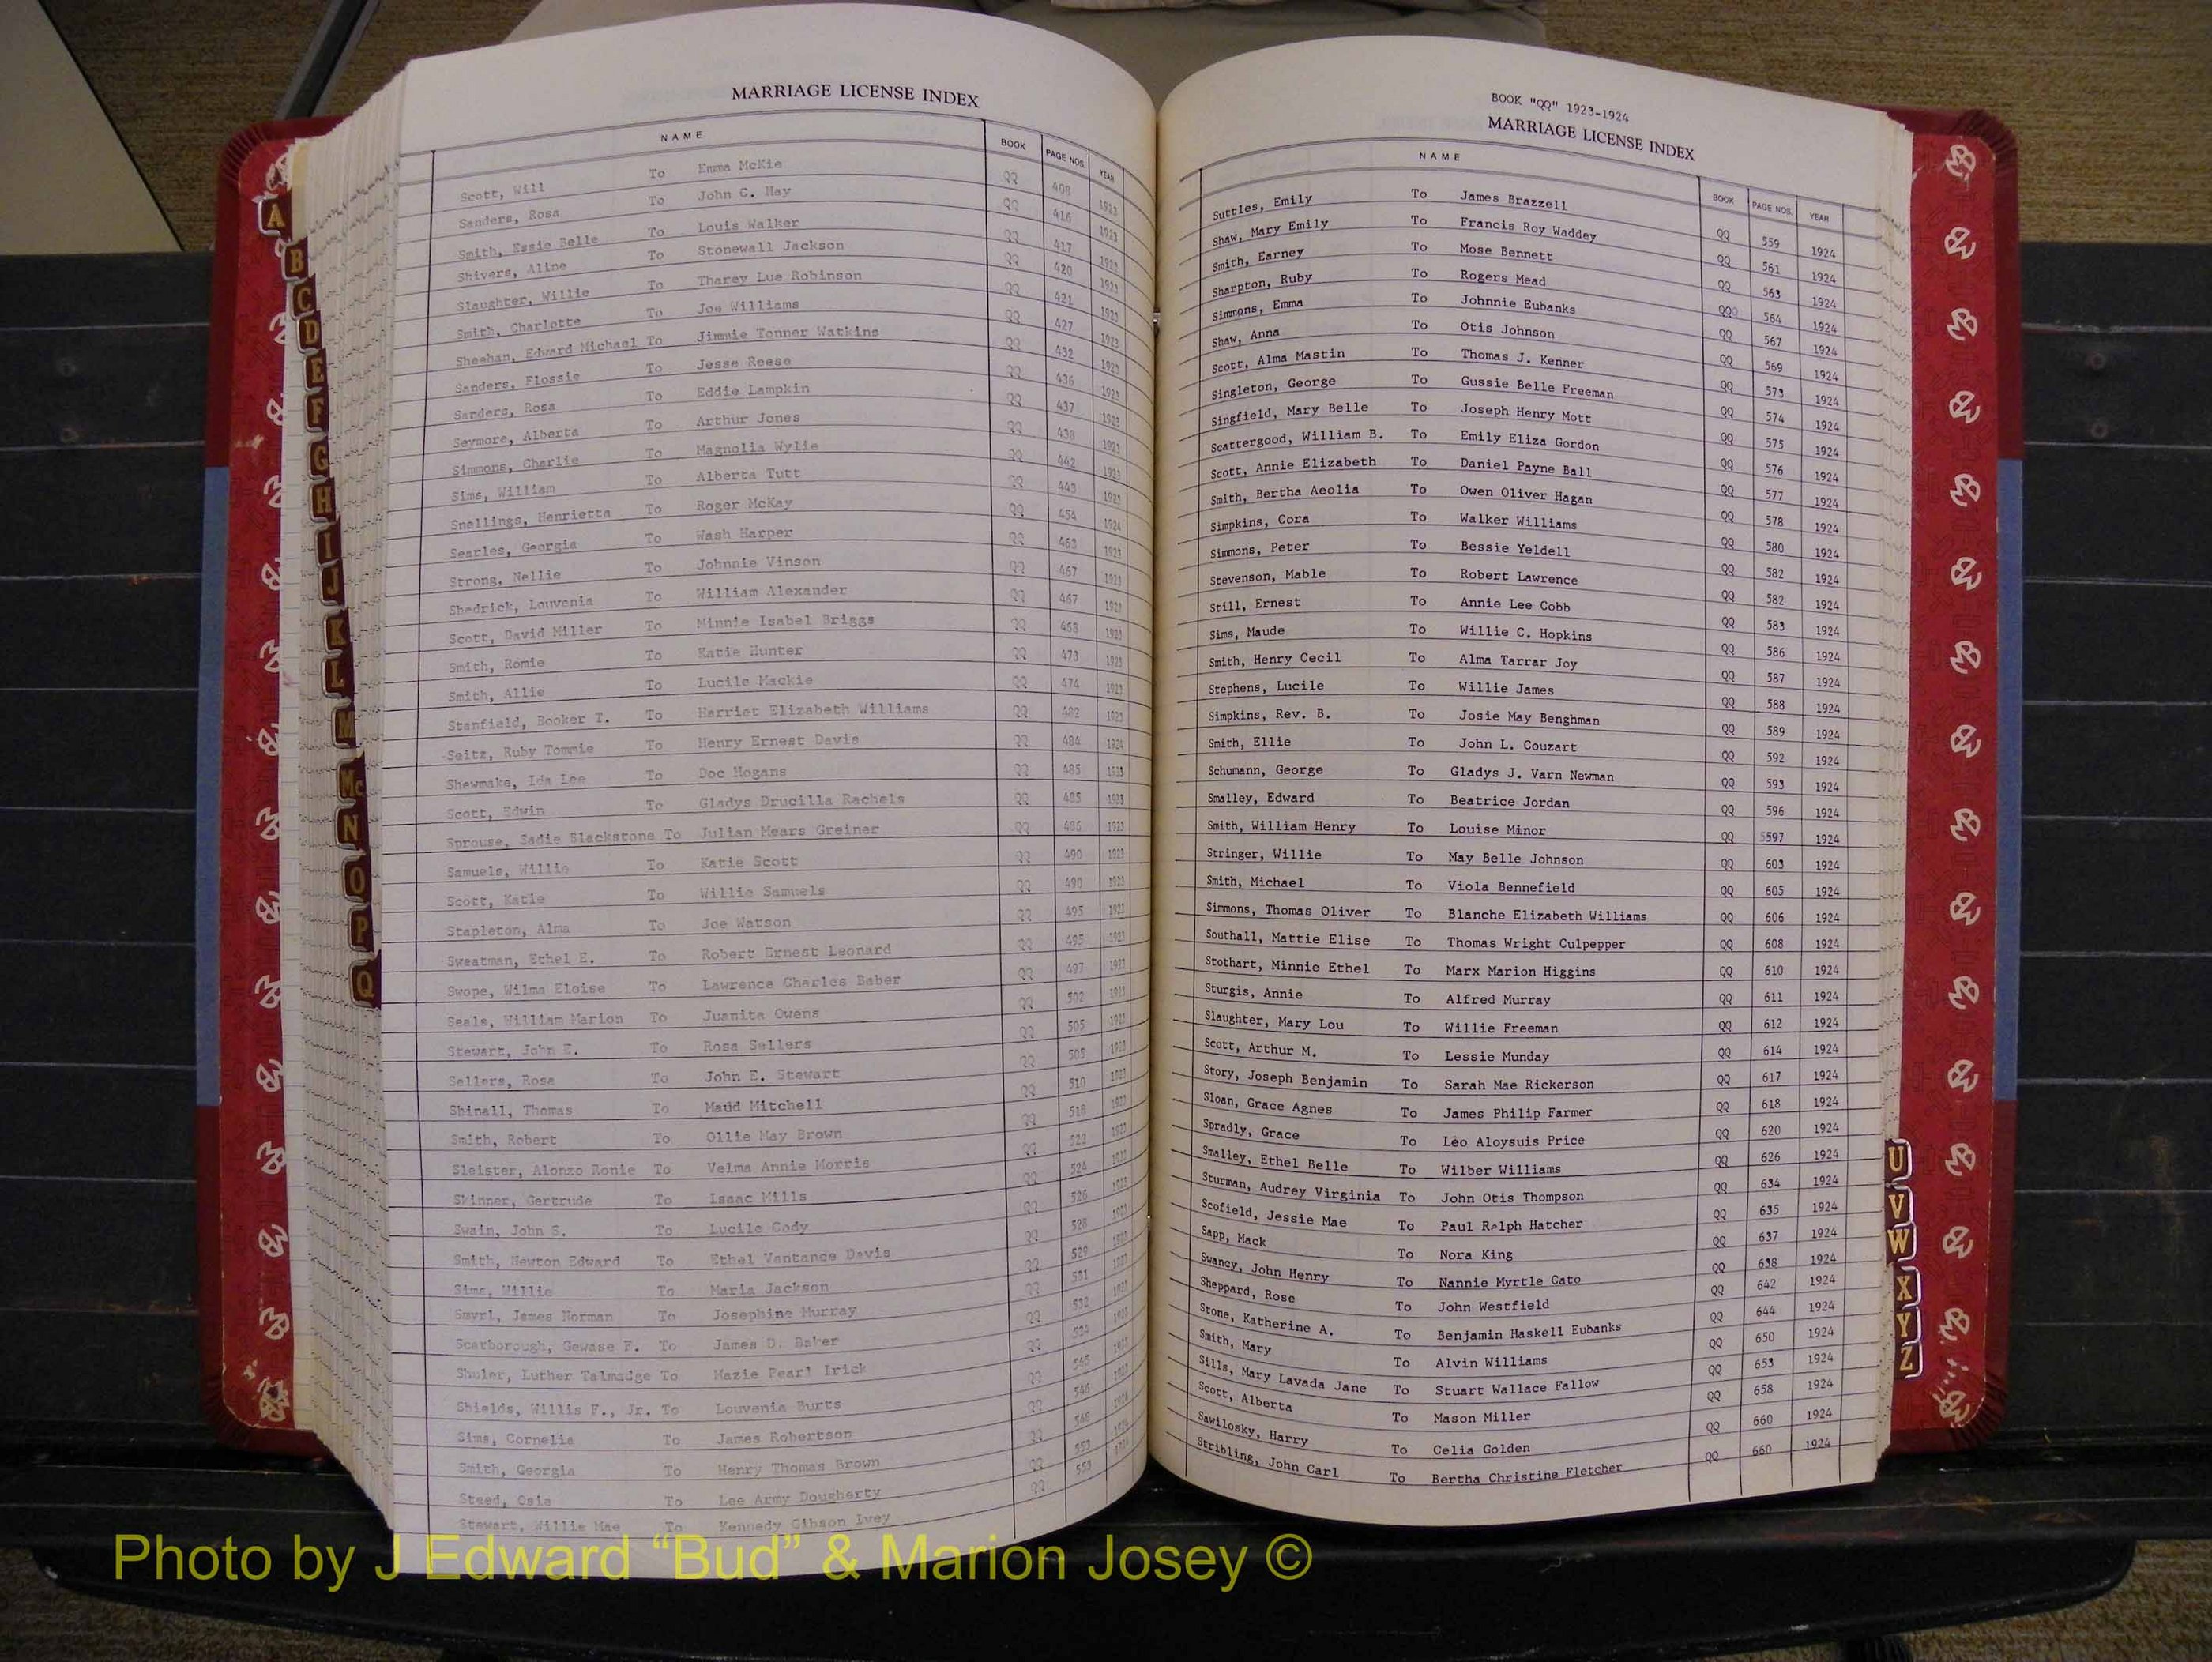 MARRIAGE LICENSE INDEX
NAME BOOK PAGE NOS. YEAR
Scott, Will To Emma McKie QQ 408 1923
Sanders, Rosa To John C. Hay QQ 416 1923
Smith, Essie Belle To Louis Walker QQ 417 1923
Shivers, Aline To Stonewall Jackson QQ 420 1923
Slaughter, Willie To Tharey Lue Robinson QQ 421 1923
Smith, Charlotte To Joe Williams QQ 427 1923
Sheehan, Edward Michael To Jimmie Tonner Watkins QQ 432 1923
Sanders, Flossie To Jesse Reese QQ 436 1923
Sanders, Rosa To Eddie Lampkin QQ 437 1923
Seymore, Alberta To Arthur Jones QQ 438 1923
Simmons, Charlie To Magnolia Wylie QQ 442 1923
Sims, William To Alberta Tutt QQ 443 1923
Snellings, Henrietta To Roger McKay QQ 454 1924
Searles, Georgia To Wash Harper QQ 463 1923
Strong, Nellie To Johnnie Vinson QQ 467 1923
Shedrick, Louvenia To William Alexander QQ 467 1923
Scott, David Miller To Minnie Isabel Briggs QQ 468 1923
Smith, Romie To Katie Hunter QQ 473 1923
Smith, Allie To Lucile Mackie QQ 474 1923
Stanfield, Booker T. To Harriet Elizabeth Williams QQ 482 1923
Seitz, Ruby Tommie To Henry Ernest Davis QQ 484 1924
Shewmake, Ida Lee To Doc Hogans QQ 485 1923
Scott, Edwin To Gladys Drucilla Rachels QQ 485 1923
Sprouse, Sadie Blackstone To Julian Mears Greiner QQ 486 1923
Samuels, Willie To Katie Scott QQ 490 1923
Scott, Katie To Willie Samuels QQ 490 1923
Stapleton, Alma To Joe Watson QQ 495 1923
Sweatman, Ethel E. To Robert Ernest Leonard QQ 495 1923
Swope, Wilma Eloise To Lawrence Charles Baber QQ 497 1923
Seals, William Marion To Juanita Owens QQ 502 1923
Stewart, John E. To Rosa Sellers QQ 505 1923
Sellers, Rosa To John E. Stewart QQ 505 1923
Shinall, Thomas To Maud Mitchell QQ 510 1923
Smith, Robert To Ollie May Brown QQ 518 1923
Sleister, Alonzo Ronie To Velma Annie Morris QQ 522 1923
Skinner, Gertrude To Isaac Mills QQ 524 1923
Swain, John S. To Lucile Cody QQ 526 1923
Smith, Newton Edward To Ethel Vantance Davis QQ 528 1923
Sims, Willie To Maria Jackson QQ 529
Smyrl, James Norman To Josephine Murray QQ 531
Scarborough, Gewase F. To James D. Baker QQ 532
Shuler, Luther Talmadge To Mazie Pearl Irick QQ 534
Shields, Willis F., Jr. To Louvenia Burts QQ 545
Sims, Cornelia To James Robertson QQ 546
Smith, Georgia To Henry Thomas Brown QQ 548
Steed, Osie To Lee Army Dougherty QQ 553
Stewart, Willie Mae To Kennedy Gibson Ivey QQ 553
A
B
C
D
E
F
G
H
I
J
K
L
M
Mc
N
O
P
Q
BOOK "QQ" 1923-1924
MARRIAGE LICENSE INDEX
NAME BOOK PAGE NOS. YEAR
Suttles, Emily To James Brazzell QQ 559 1924
Shaw, Mary Emily To Francis Roy Waddey QQ 561 1924
Smith, Earney To Mose Bennett QQ 563 1924
Sharpton, Ruby To Rogers Mead QQQ 564 1924
Simmons, Emma To Johnnie Eubanks QQ 567 1924
Shaw, Anna To Otis Johnson QQ 569 1924
Scott, Alma Mastin To Thomas J. Kenner QQ 573 1924
Singleton, George To Gussie Belle Freeman QQ 574 1924
Singfield, Mary Belle To Joseph Henry Mott QQ 575 1924
Scattergood, William B. To Emily Eliza Gordon QQ 576 1924
Scott, Annie Elizabeth To Daniel Payne Ball QQ 577 1924
Smith, Bertha Aeolia To Owen Oliver Hagan QQ 578 1924
Simpkins, Cora To Walker Williams QQ 580 1924
Simmons, Peter To Bessie Yeldell QQ 582 1924
Stevenson, Mable To Robert Lawrence QQ 582 1924
Still, Ernest To Annie Lee Cobb QQ 583 1924
Sims, Maude To Willie C. Hopkins QQ 586 1924
Smith, Henry Cecil To Alma Tarrar Joy QQ 587 1924
Stephens, Lucile To Willie James QQ 588 1924
Simpkins, Rev. B. To Josie May Benghman QQ 589 1924
Smith, Ellie To John L. Couzart QQ 592 1924
Schumann, George To Gladys J. Varn Newman QQ 593 1924
Smalley, Edward To Beatrice Jordan QQ 596 1924
Smith, William Henry To Louise Minor QQ 5597 1924
Stringer, Willie To May Belle Johnson QQ 603 1924
Smith, Michael To Viola Bennefield QQ 605 1924
Simmons, Thomas Oliver To Blanche Elizabeth Williams QQ 606 1924
Southall, Mattie Elise To Thomas Wright Culpepper QQ 608 1924
Stothart, Minnie Ethel To Marx Marion Higgins QQ 610 1924
Sturgis, Annie To Alfred Murray QQ 611 1924
Slaughter, Mary Lou To Willie Freeman QQ 612 1924
Scott, Arthur M. To Lessie Munday QQ 614 1924
Story, Joseph Benjamin To Sarah Mae Rickerson QQ 617 1924
Sloan, Grace Agnes To James Philip Farmer QQ 618 1924
Spradly, Grace To Leo Aloysuis Price QQ 620 1924
Smalley, Ethel Belle To Wilber Williams QQ 626 1924
Sturman, Audrey Virginia To John Otis Thompson QQ 634 1924
Scofield, Jessie Mae To Paul Ralph Hatcher QQ 635 1924
Sapp, Mack To Nora King QQ 637 1924
Swancy, John Henry To Nannie Myrtle Cato QQ 638 1924
Sheppard, Rose To John Westfield QQ 642 1924
Stone, Katherine A. To Benjamin Haskell Eubanks QQ 644 1924
Smith, Mary To Alvin Williams QQ 650 1924
Sills, Mary Lavada Jane To Stuart Wallace Fallow QQ 653 1924
Scott, Alberta To Mason Miller QQ 658 1924
Sawilosky, Harry To Celia Golden QQ 660 1924
Stribling, John Carl To Bertha Christine Fletcher QQ 660 1924
U
V
W
X
Y
Z
Photo by J Edward “Bud” & Marion Josey ©